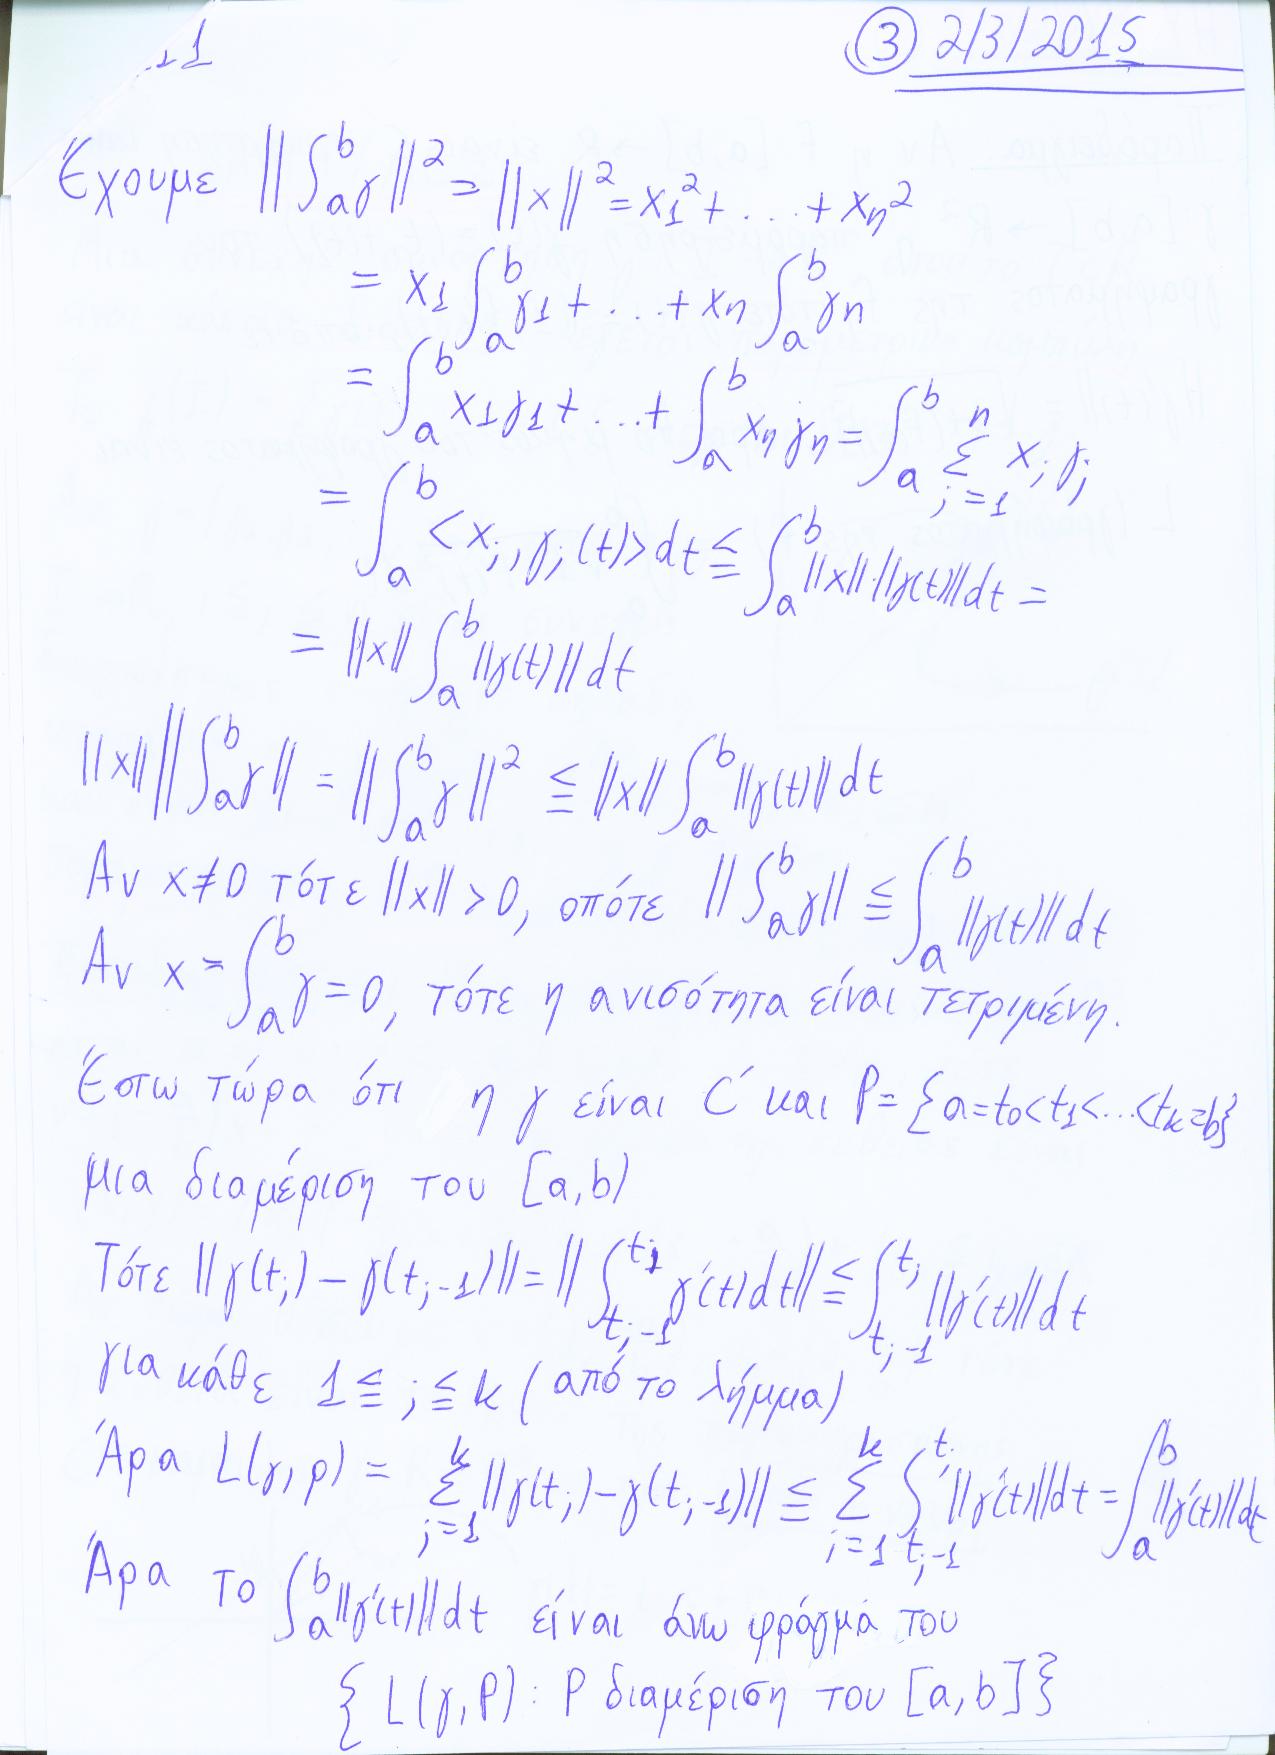 11
③ 2/3/2015
Έχουμε ||∫_a^b γ||² = ||x||² = x₁² + ... + xₙ²
= x₁ ∫_a^b γ₁ + ... + xₙ ∫_a^b γₙ
= ∫_a^b x₁γ₁ + ... + ∫_a^b xₙγₙ = ∫_a^b Σ_{j=1}^n x_j γ_j
= ∫_a^b <x_j, γ_j(t)> dt ≦ ∫_a^b ||x||·||γ(t)|| dt =
= ||x|| ∫_a^b ||γ(t)|| dt
||x|| ||∫_a^b γ|| = ||∫_a^b γ||² ≦ ||x|| ∫_a^b ||γ(t)|| dt
Αν x≠0 τότε ||x|| > 0, οπότε ||∫_a^b γ|| ≦ ∫_a^b ||γ(t)|| dt
Αν x = ∫_a^b γ = 0, τότε η ανισότητα είναι τετριμένη.
Έστω τώρα ότι η γ είναι C΄ και P = {a=t₀<t₁<...<t_k=b}
μια διαμέριση του [a,b)
Τότε ||γ(t_j) − γ(t_{j-1})|| = ||∫_{t_{j-1}}^{t_j} γ΄(t)dt|| ≦ ∫_{t_{j-1}}^{t_j} ||γ΄(t)|| dt
για κάθε 1 ≦ j ≦ k (από το λήμμα)
Άρα L(γ,p) = Σ_{j=1}^k ||γ(t_j) − γ(t_{j-1})|| ≦ Σ_{j=1}^k ∫_{t_{j-1}}^{t_j} ||γ΄(t)||dt = ∫_a^b ||γ΄(t)||dt
Άρα το ∫_a^b ||γ΄(t)|| dt είναι άνω φράγμα του
{ L(γ,P) : P διαμέριση του [a,b] }